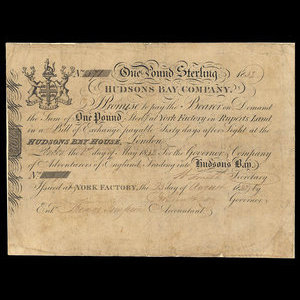 No. One Pound Sterling
HUDSONS BAY COMPANY.
I Promise to pay the Bearer on Demand
the Sum of One Pound Sterl.g at York Factory in Ruperts Land
in a Bill of Exchange payable Sixty days after Sight at the
HUDSONS BAY HOUSE, London.
London the day of May For the Governor & Company
of Adventurers of England Trading into Hudsons Bay.
Secretary
Issued at YORK FACTORY, the day of by
Governor
Ent. Accountant.